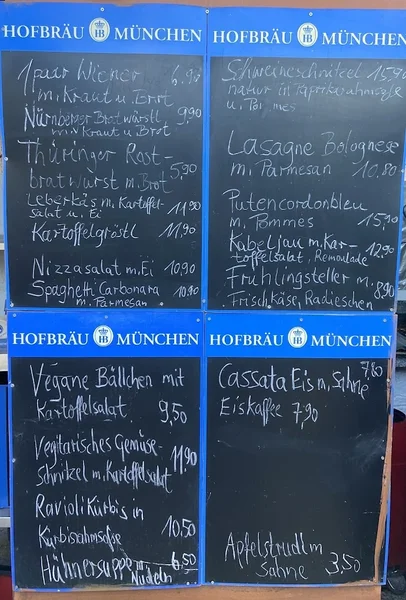 HOFBRÄU HB MÜNCHEN
1 paar Wiener 6.90
m. Kraut u. Brot
Nürnberger Bratwürstl 9,90
m. Kraut u. Brot
Thüringer Rost-
bratwurst m. Brot 5,90
Leberkäs m. Kartoffel-
salat u. Ei 11,90
Kartoffelgröstl 11,90
Nizzasalat m. Ei 10,90
Spaghetti Carbonara 10,90
m. Parmesan
HOFBRÄU HB MÜNCHEN
Schweineschnitzel 15,90
natur in Paprikarahmsoße
u. Pommes
Lasagne Bolognese
m. Parmesan 10,80
Putencordonbleu
m. Pommes 15,90
Kabeljau m. Kar- 12,90
toffelsalat, Remoulade
Frühlingsteller m. 8,90
Frischkäse, Radieschen
HOFBRÄU HB MÜNCHEN
Vegane Bällchen mit
Kartoffelsalat 9,50
Vegitarisches Gemüse-
Schnitzel m. Kartoffelsalat 11,90
Ravioli Kürbis in
Kürbisrahmsoße 10,50
Hühnersuppe m. 6,50
Nudeln
HOFBRÄU HB MÜNCHEN
Cassata Eis m. Sahne 7,80
Eiskaffee 7,90
Apfelstrudl m
Sahne 3,50